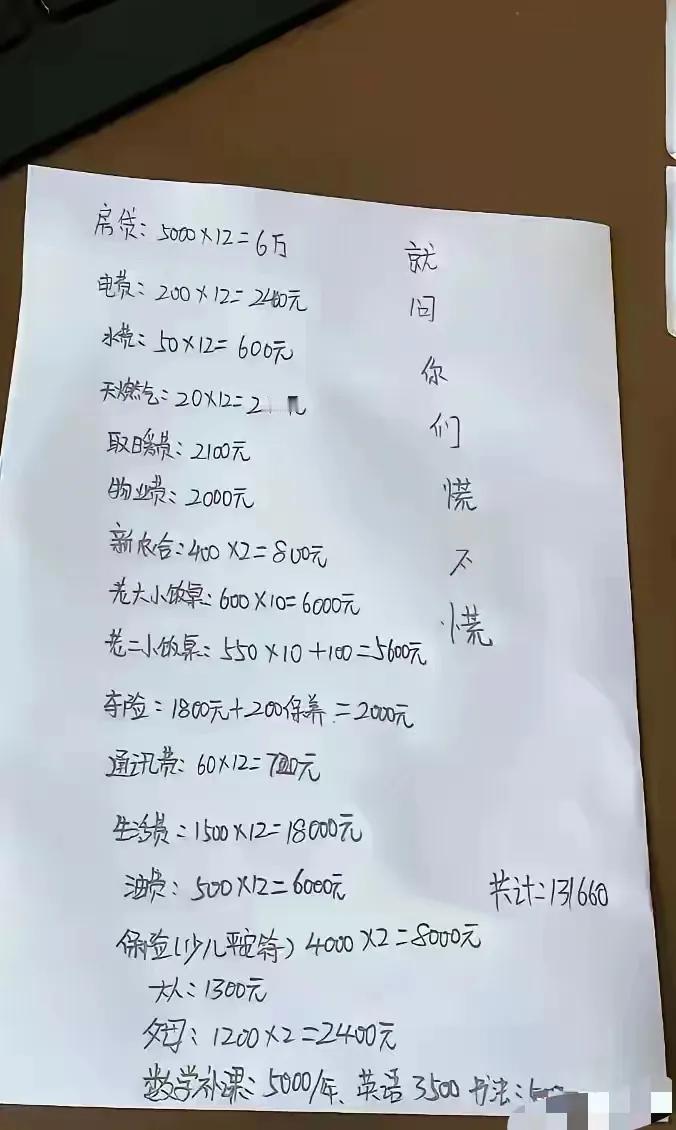 房贷: 5000×12=6万
电费: 200×12=2400元
水费: 50×12=600元
天燃气: 20×12=2 元
取暖费: 2100元
物业费: 2000元
新农合: 400×2=800元
老大小饭桌: 600×10=6000元
老二小饭桌: 550×10+100=5600元
车险: 1800元+200保养=2000元
通讯费: 60×12=720元
生活费: 1500×12=18000元
油费: 500×12=6000元
保险(少儿平安符) 4000×2=8000元
大人: 1300元
父母: 1200×2=2400元
数学补课: 5000/年、英语 3500 书法:
就
问
你
们
慌
不
慌
共计: 131660